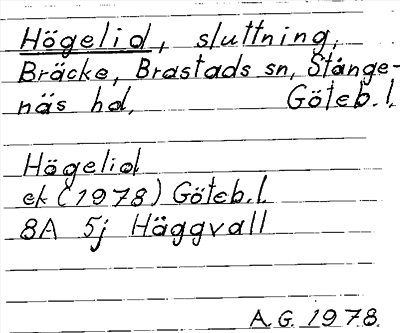 Högelid, sluttning,
Bräcke, Brastads sn, Stånge-
näs hd, Göteb.l.
Högelid
ek (1978) Göteb.l.
8A 5j Häggvall
A.G. 1978.